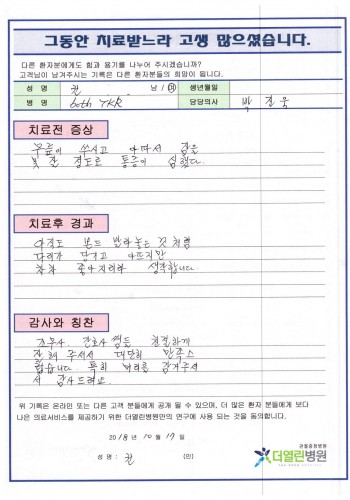 그동안 치료받느라 고생 많으셨습니다.
다른 환자분에게도 힘과 용기를 나누어 주시겠습니까?
고객님이 남겨주시는 기록은 다른 환자분들의 희망이 됩니다.
성 명 남 / 여 생년월일
병 명 both TKR 담당의사 박
치료전 증상
무릎이 쑤시고 아파서 잠을
못 잘 정도로 통증이 심했다.
치료후 경과
아직도 본드 발라놓은 것 처럼
다리가 당기고 아프지만
차차 좋아지리라 생각합니다.
감사와 칭찬
간호사 쌤들 친절하게
잘해 주셔서 대단히 만족스
럽습니다. 특히 머리를 감겨주셔
서 감사드려요.
위 기록은 온라인 또는 다른 고객 분들에게 공개 될 수 있으며, 더 많은 환자 분들에게 보다
나은 의료서비스를 제공하기 위한 더열린병원만의 연구에 사용 되는 것을 동의합니다.
2018년 10월 17일
성 명 : (인)
관절중점병원
더열린병원